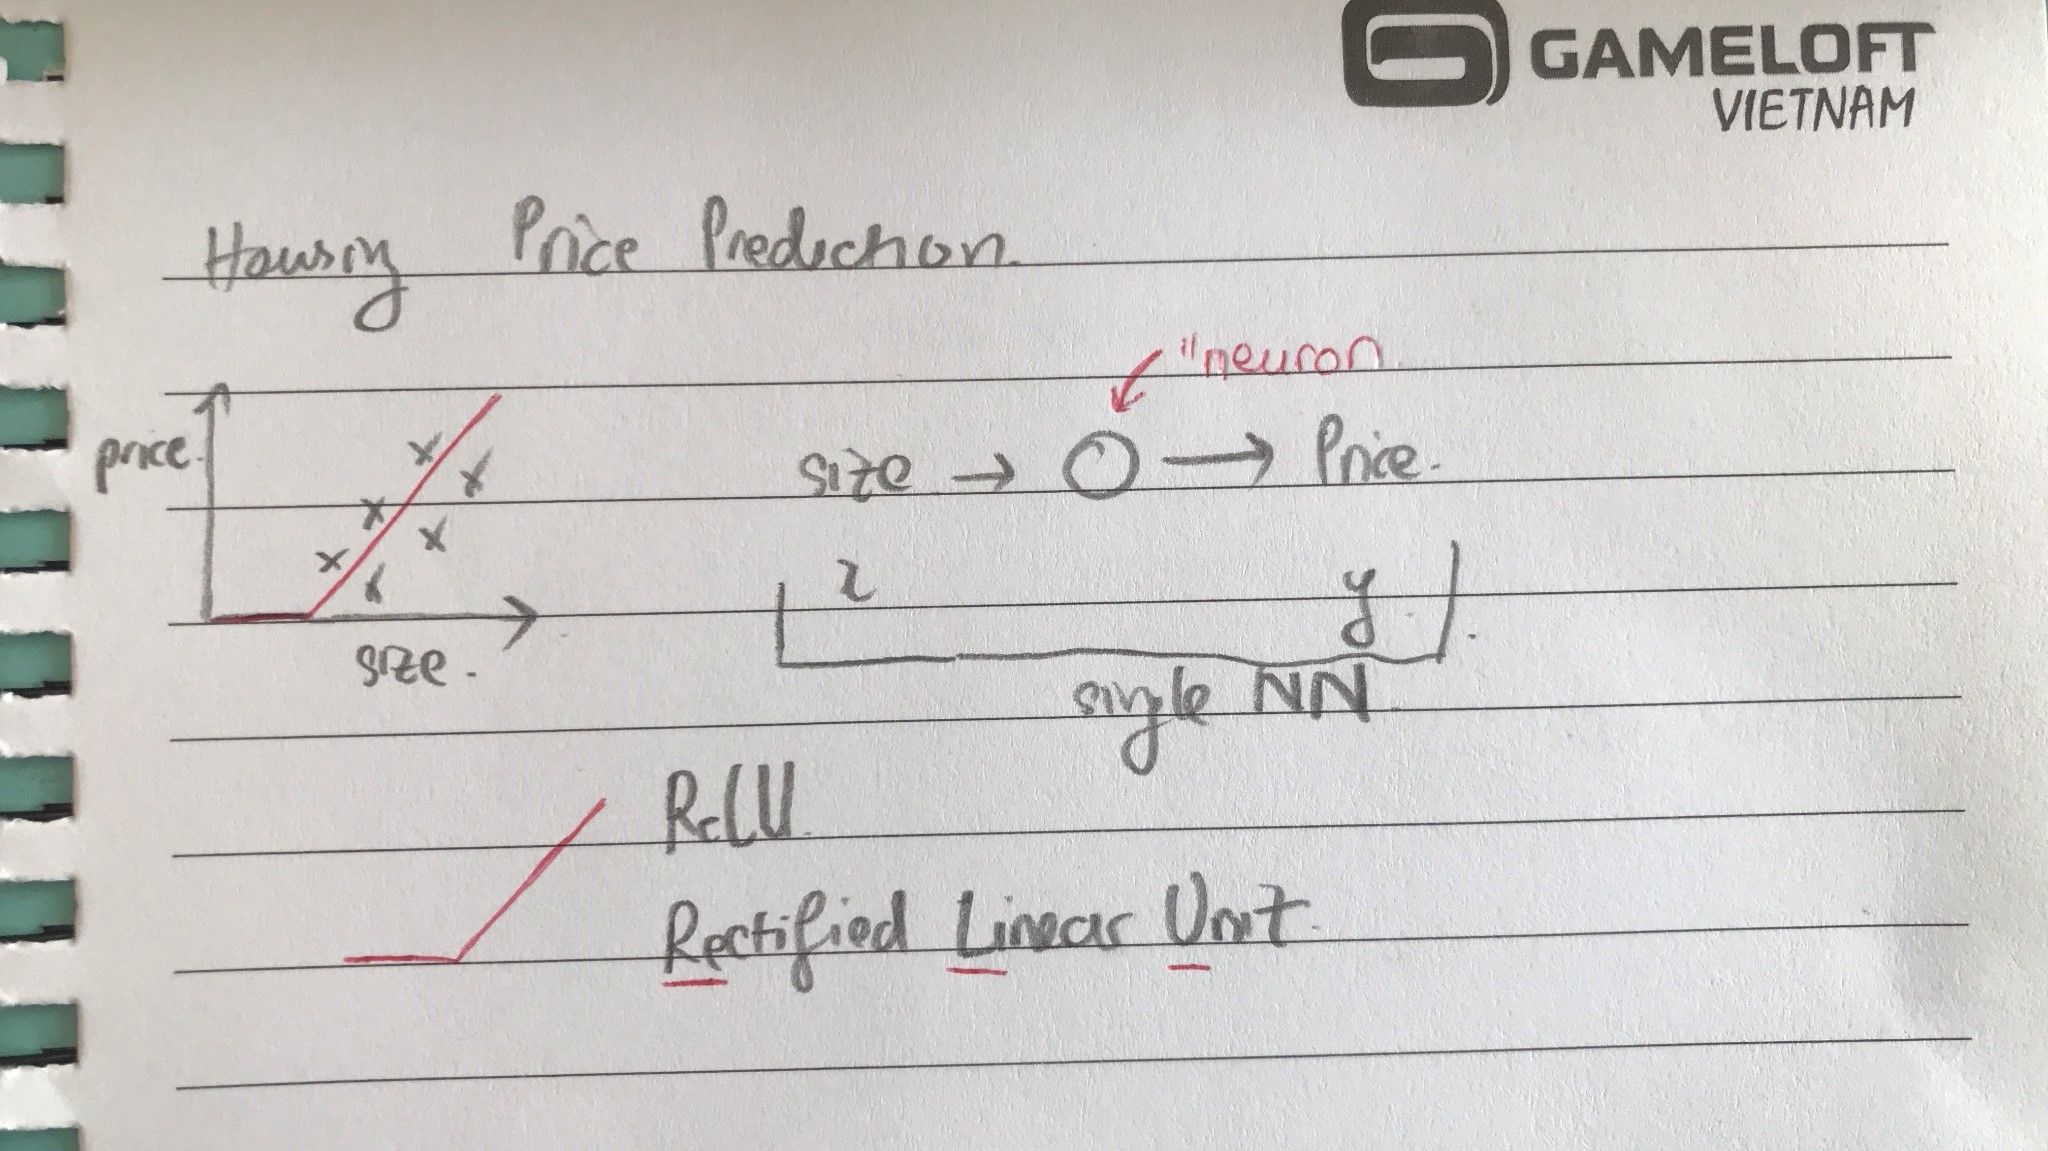 GAMELOFT
VIETNAM
Housing Price Prediction.
"neuron
price.
size → O → Price.
x y
size.
single NN
ReLU
Rectified Linear Unit.